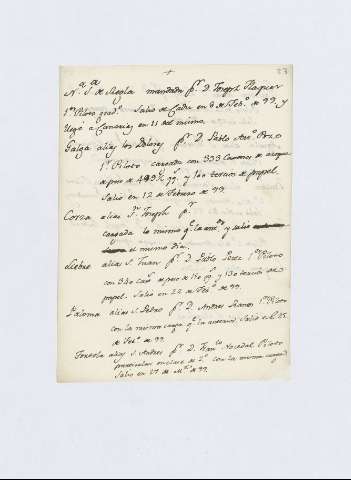 + 23
N.ª S.ª de Regla mandada p.r D. Joseph
1.er Piloto grad.º Salio de Cadiz en 8 de Feb.º de 99. y
llegó a Canarias en 21 del mismo.
Galga alias los Dolores p.r D. Pablo Ant.º
1.er Piloto cargada con 333 Caxones de
de peso de y 120 tercios de papel.
Salio en 12 de Febrero de 99.
Corza alias S.n Joseph p.r
cargada lo mismo q.e la ant.or y salio
el mismo dia.
Liebre alias S. Juan p.r D. Pablo Perez 1.er Piloto
con 330 cax.s de peso de 150 y 130 tercios de
papel. Salio en 22 de Feb.º de 99.
Paloma alias S. Pedro p.r D. Andres 1.er Piloto
con la misma carga q.e la anterior. Salio en 25
de Feb.º de 99.
alias S. Andres p.r D. Piloto
particular en clase de 2.º con la misma carga
Salio en 27 de de 99.